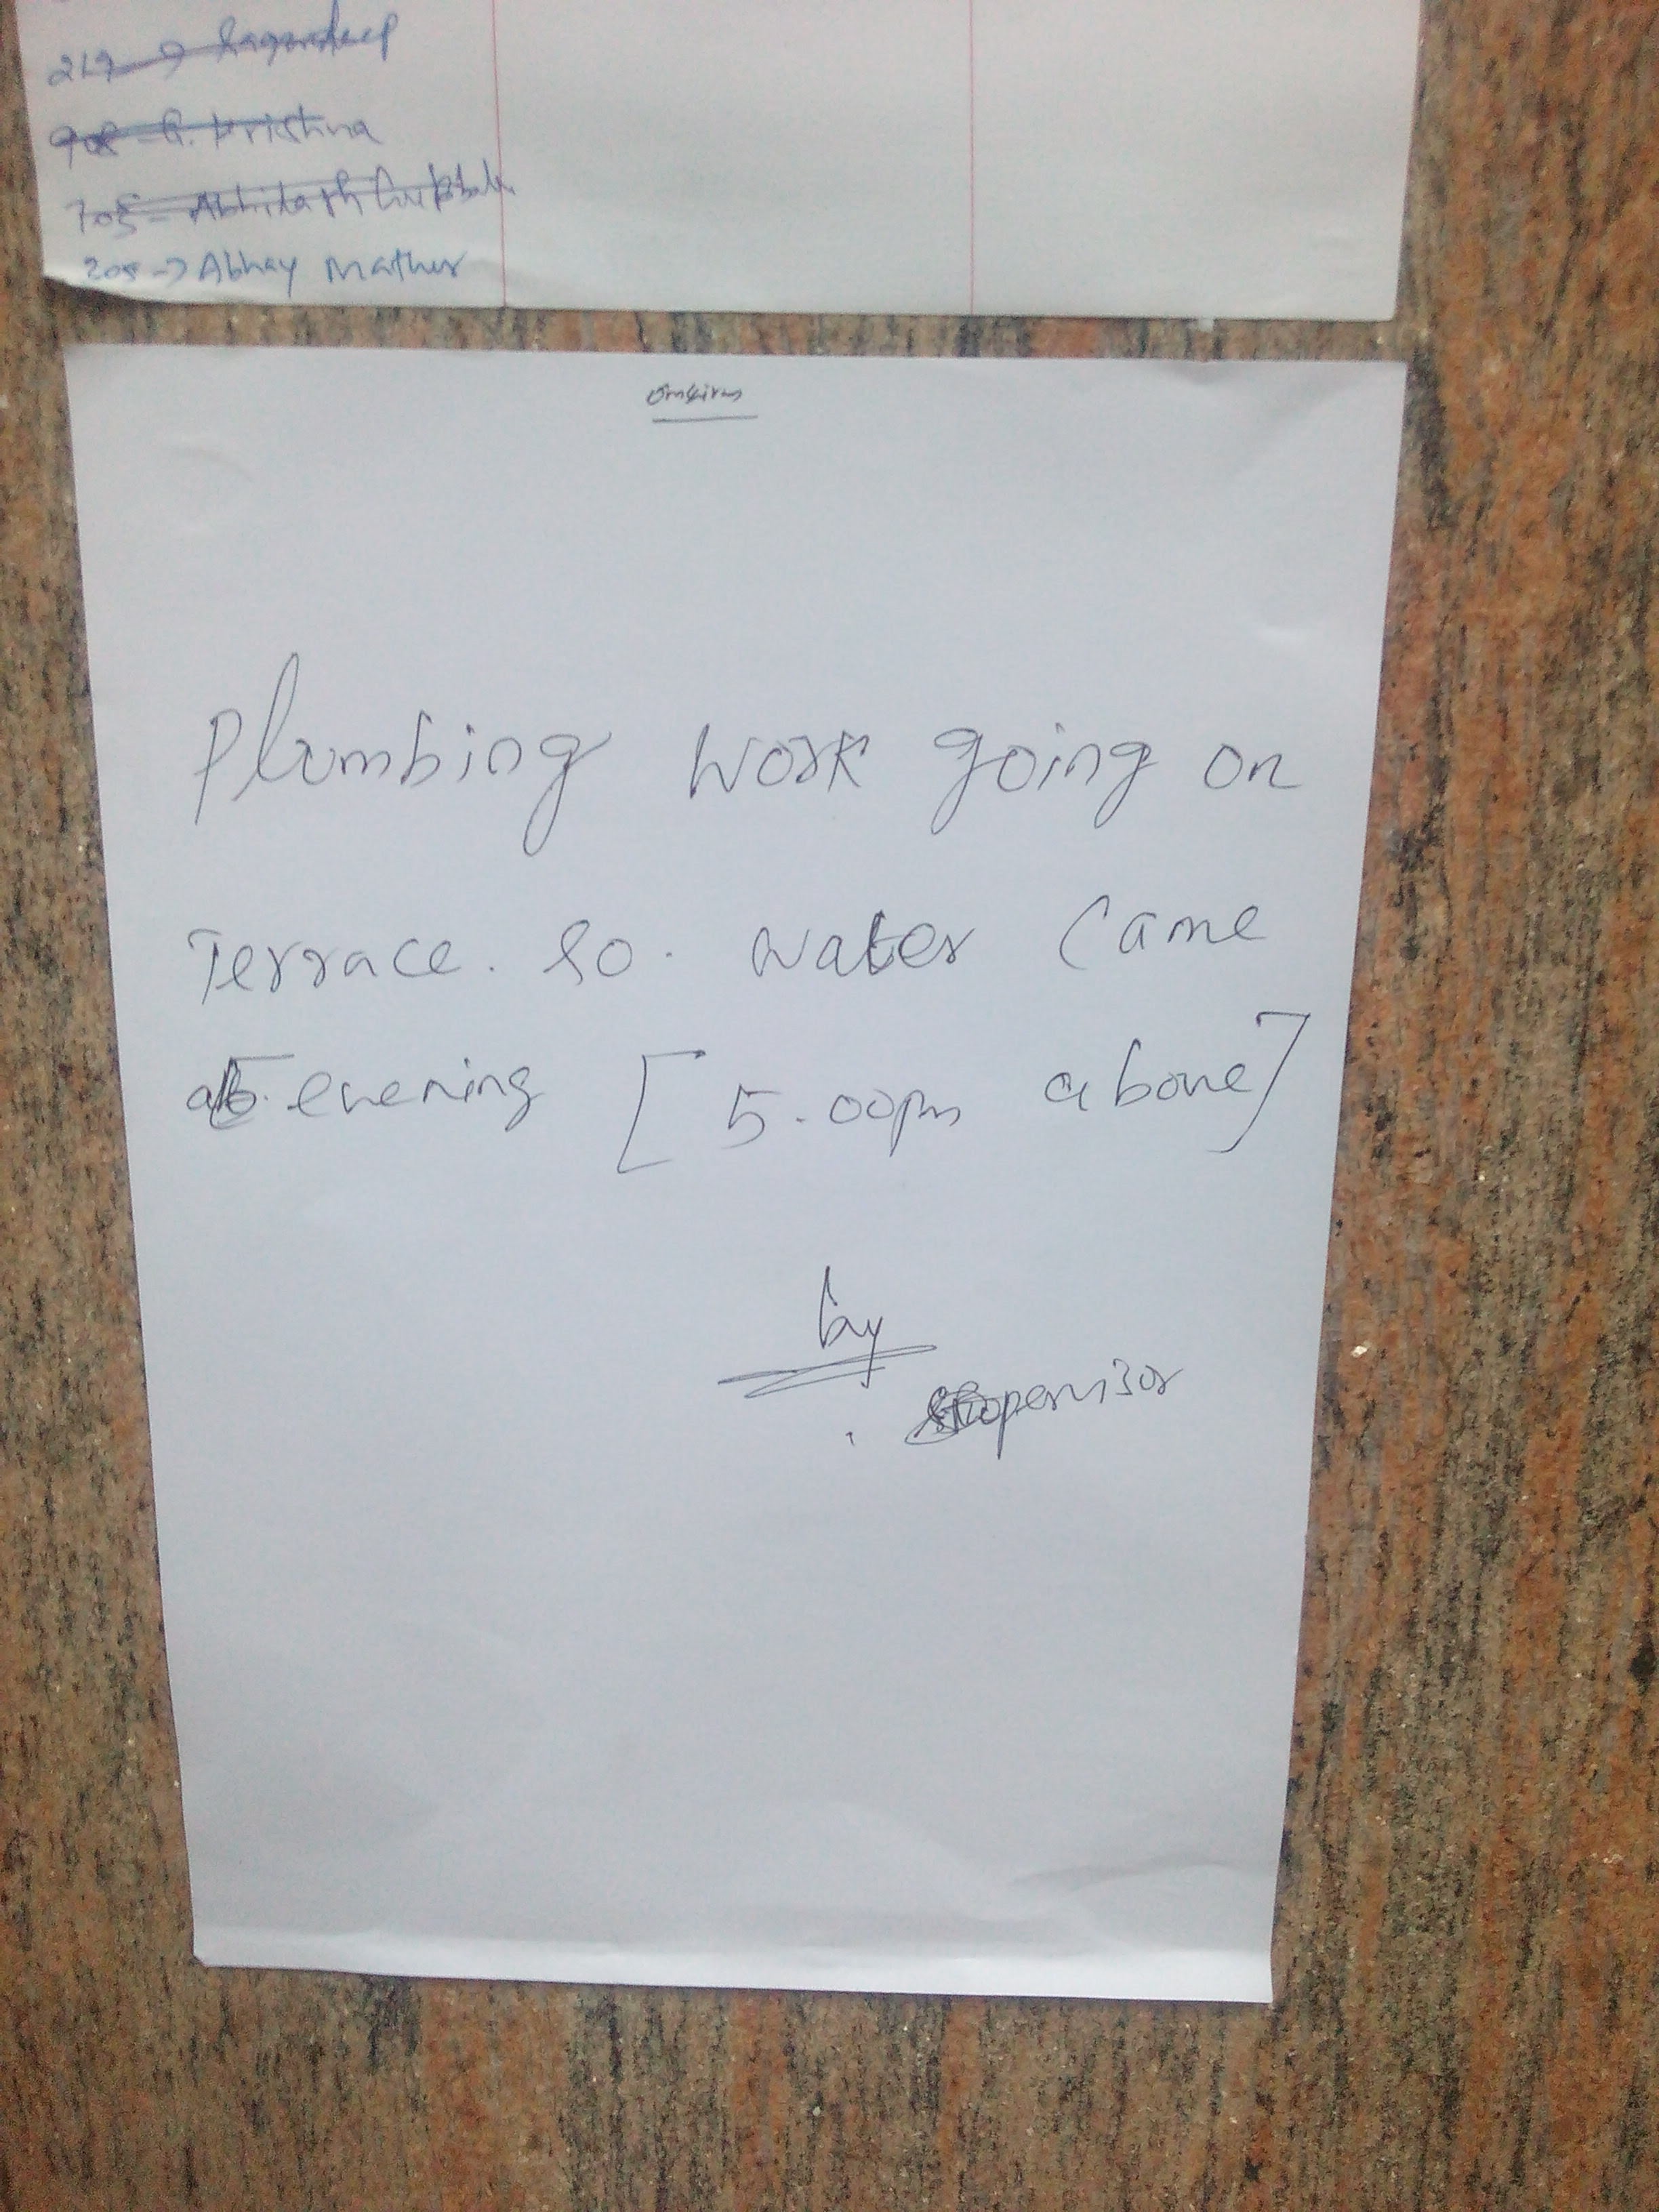 219 → Sagardeep
G. Krishna
705 - Abhilash
205 → Abhay Mathur
Plumbing work going on
Terrace. So. water came
at evening [5.00pm above]
by
Supervisor